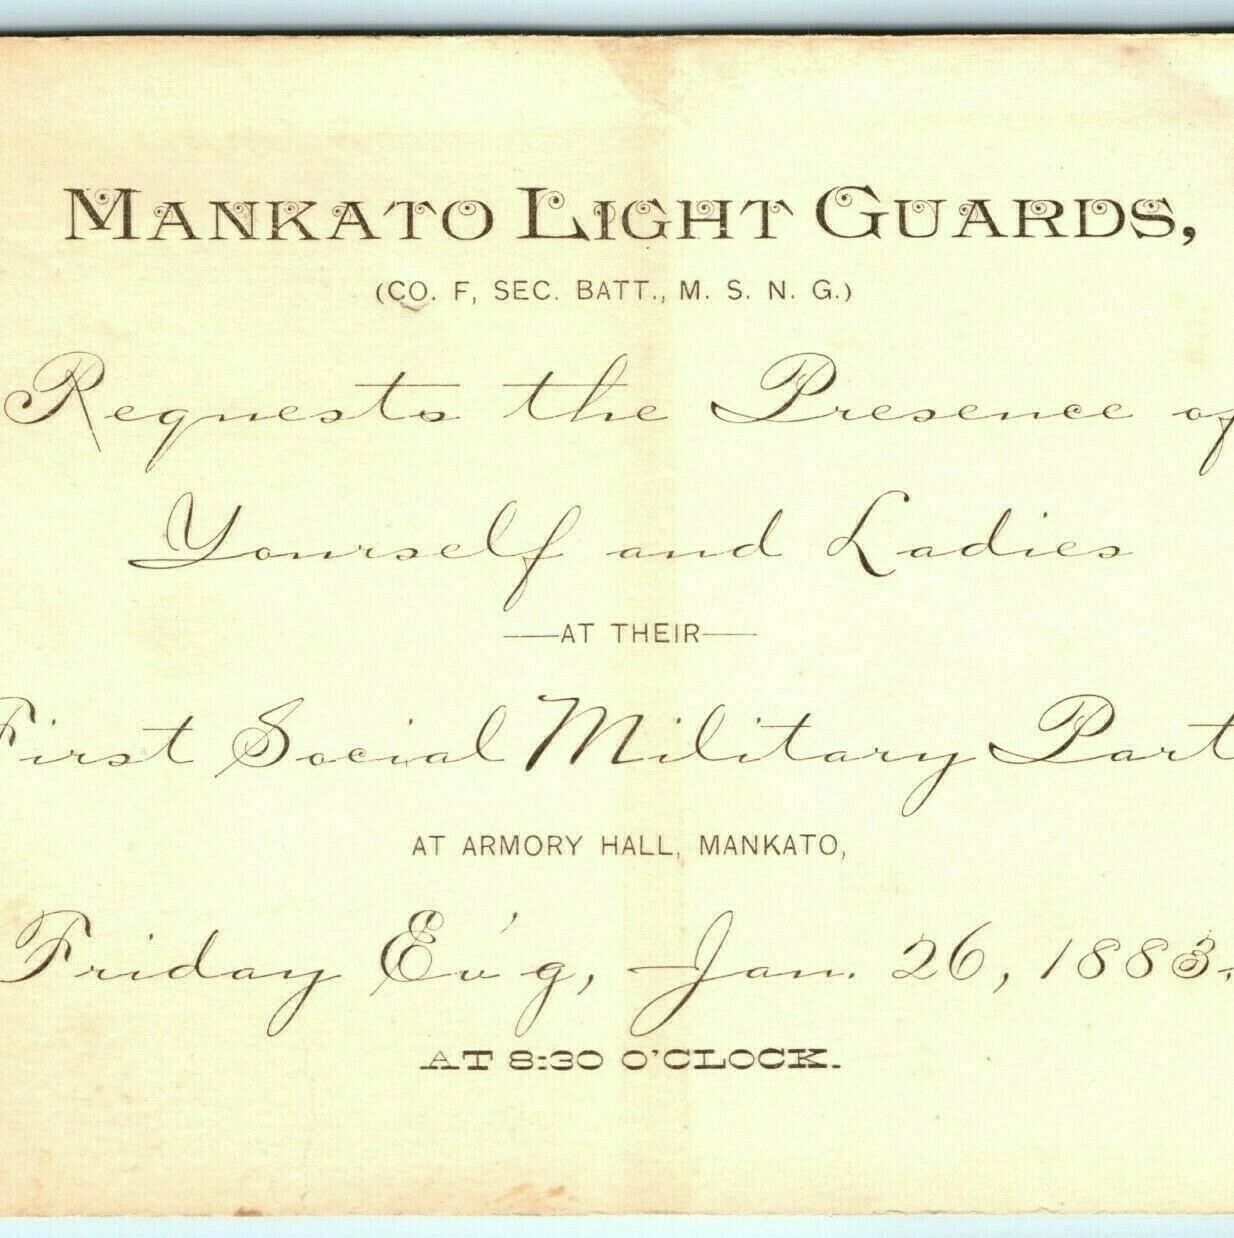 MANKATO LIGHT GUARDS,
(CO. F, SEC. BATT., M. S. N. G.)
Requests the Presence of
Yourself and Ladies
—AT THEIR—
First Social Military Part
AT ARMORY HALL, MANKATO,
Friday Ev'g, Jan. 26, 1883.
AT 8:30 O'CLOCK.